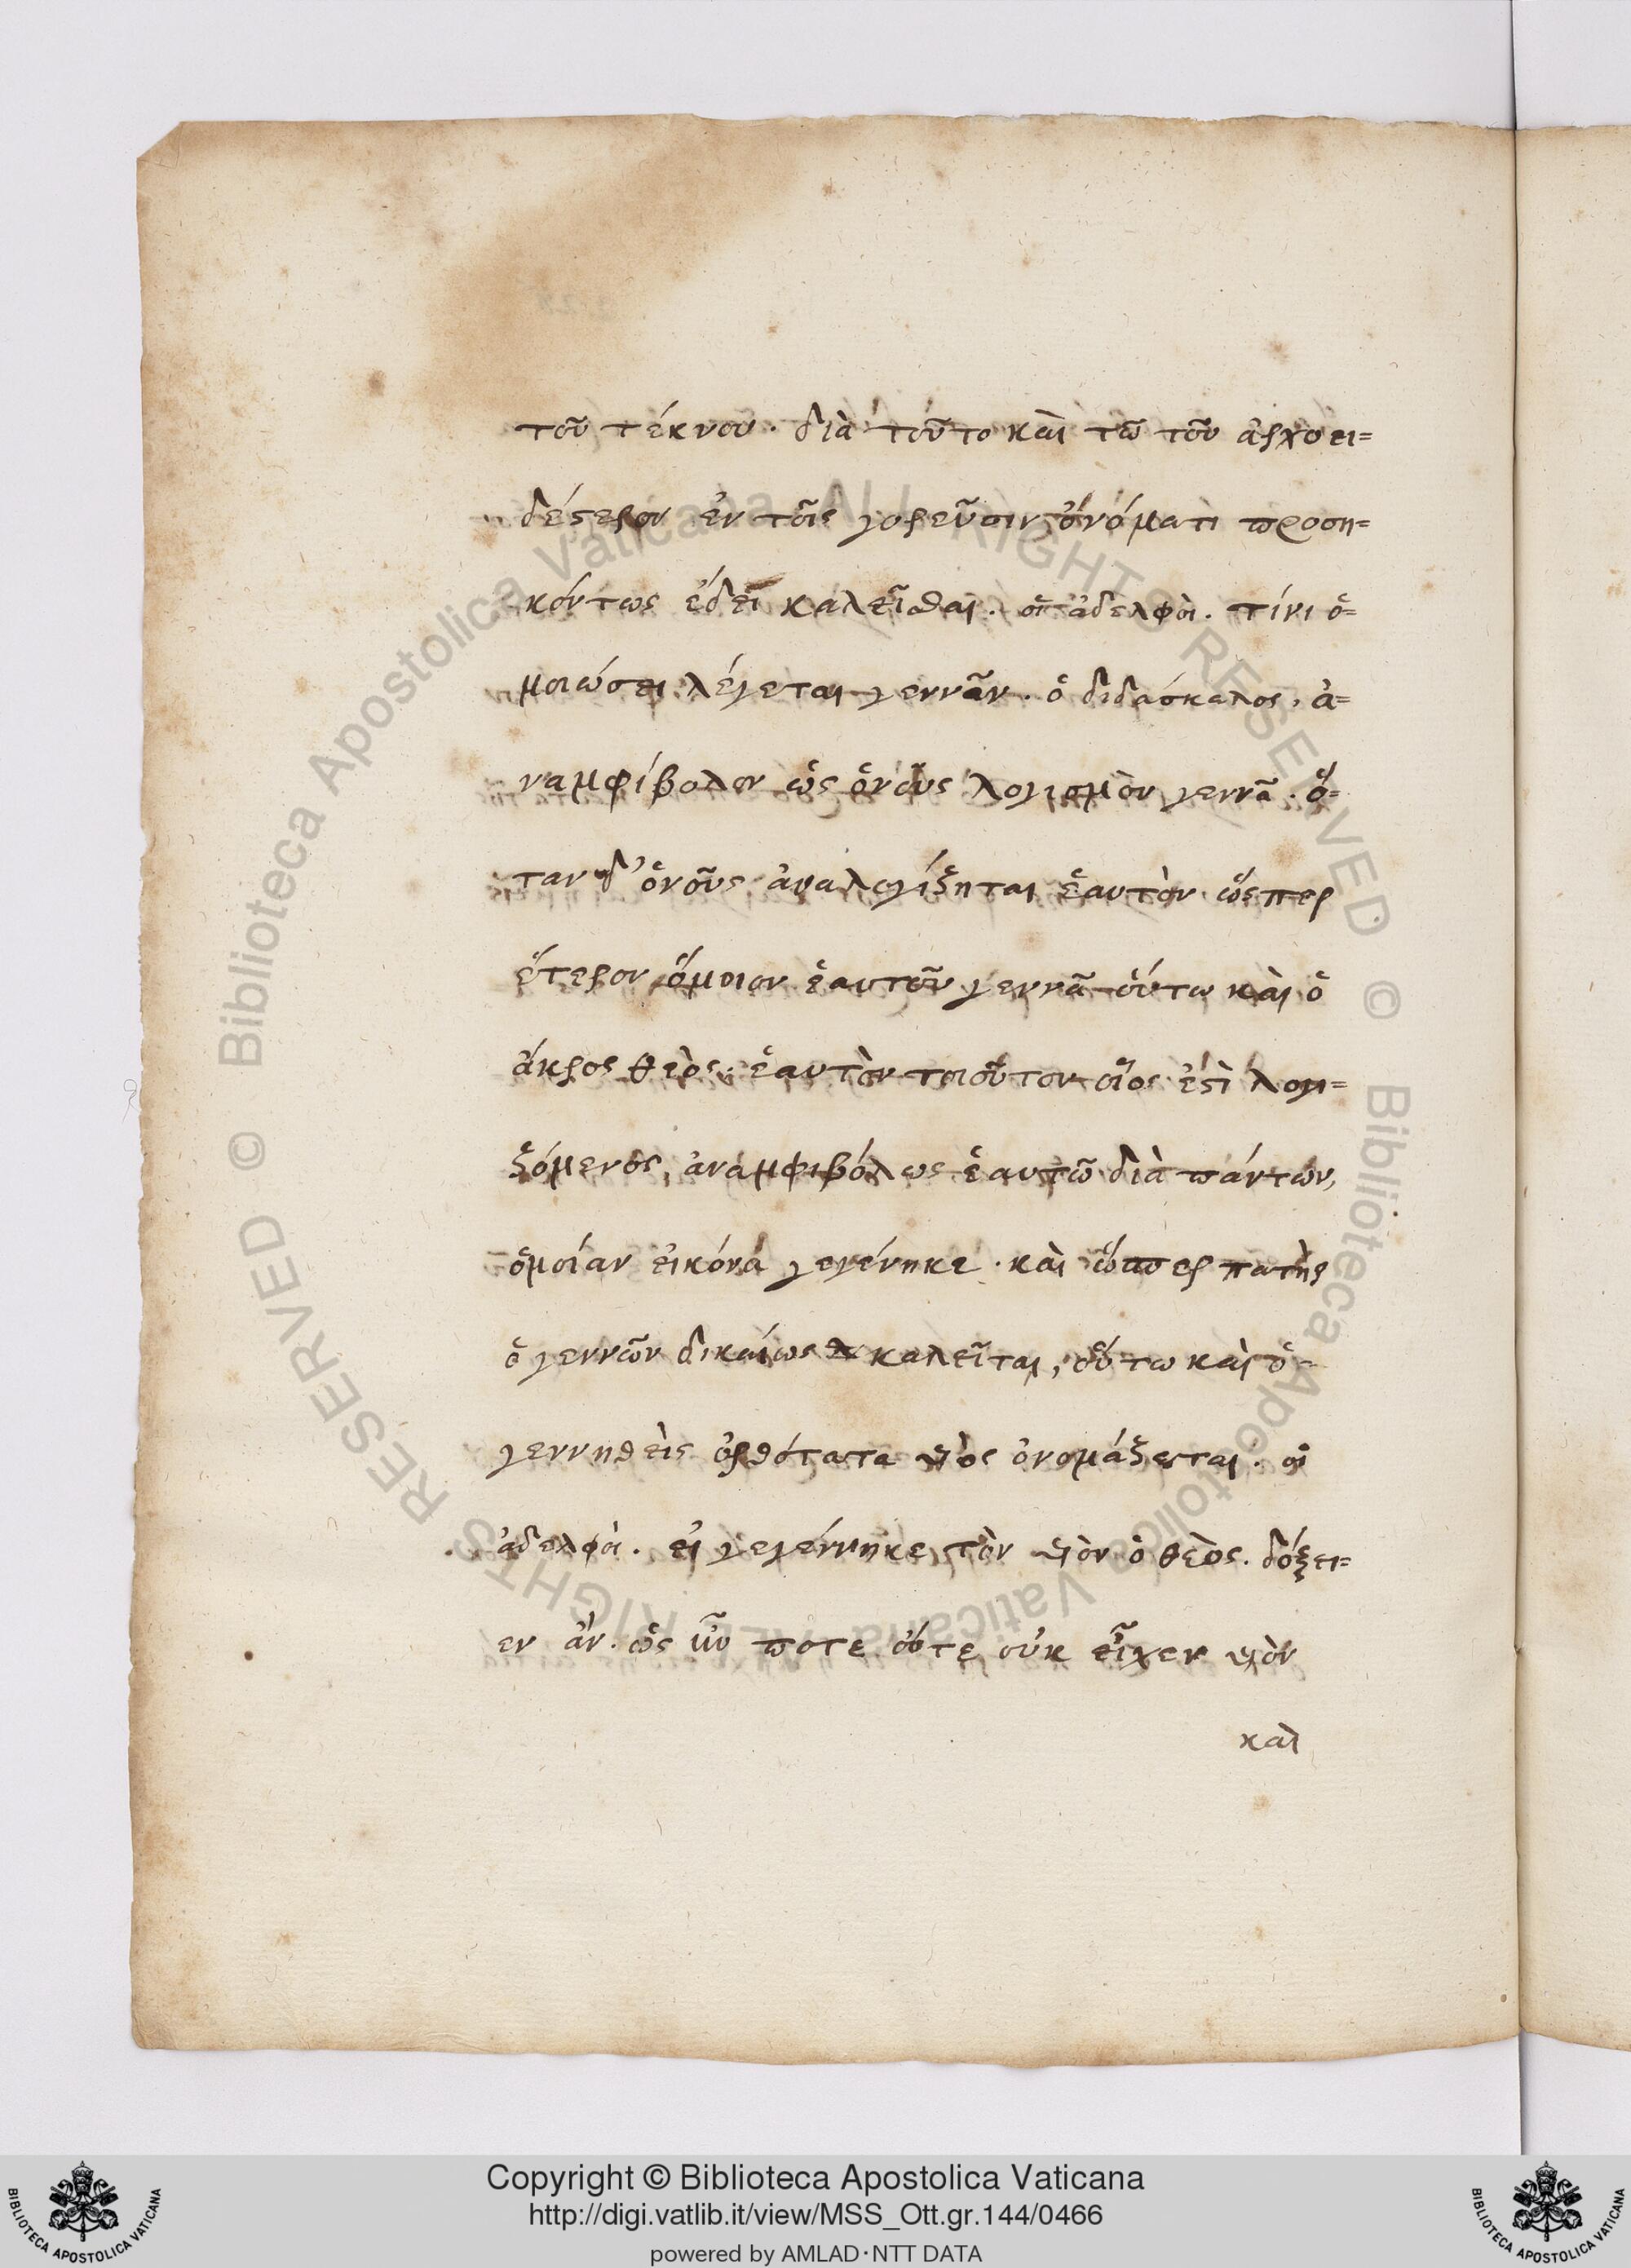 τοῦ τέκνου. διὰ τοῦτο καὶ τῶ τοῦ ἀρχοει=
δέστερον ἐν τοῖς γορεῦσιν ὀνόματι προση=
κόντως ἔδει καλεῖσθαι. οἱ ἀδελφοὶ. τίνι ὁ=
μοιώσει λέγεται γεννᾶν. ὁ διδάσκαλος. ἀ=
ναμφίβολον ὡς ὁ νοῦς λογισμὸν γεννᾶ. ὅ=
ταν δ' ὁ νοῦς ἀναλογίζηται ἑαυτὸν ὥσπερ
ἕτερον ὅμοιον ἑαυτοῦ γεννᾶ οὕτω καὶ ὁ
ἄκρος θεὸς. ἑαυτὸν τοιοῦτον οἷος ἐστὶ λογι=
ζόμενος, ἀναμφιβόλως ἑαυτῶ διὰ πάντων,
ὁμοίαν εἰκόνα γεγένηκε. καὶ ὥσπερ πατὴρ
ὁ γεννῶν δικαίως καλεῖται, οὕτω καὶ ὁ=
γεννηθεὶς ὀρθότατα υἱὸς ὀνομάζεται. οἱ
ἀδελφοὶ. εἰ γεγέννηκε τὸν υἱὸν ὁ θεὸς. δόξει=
εν ἂν. ὡς ἦν ποτε ὅτε οὐκ εἶχεν υἱὸν
καὶ
Copyright © Biblioteca Apostolica Vaticana
http://digi.vatlib.it/view/MSS_Ott.gr.144/0466
powered by AMLAD·NTT DATA
BIBLIOTECA APOSTOLICA VATICANA
BIBLIOTECA APOSTOLICA VATICANA
© Biblioteca Apostolica Vaticana ALL RIGHTS RESERVED © Biblioteca Apostolica Vaticana ALL RIGHTS RESERVED